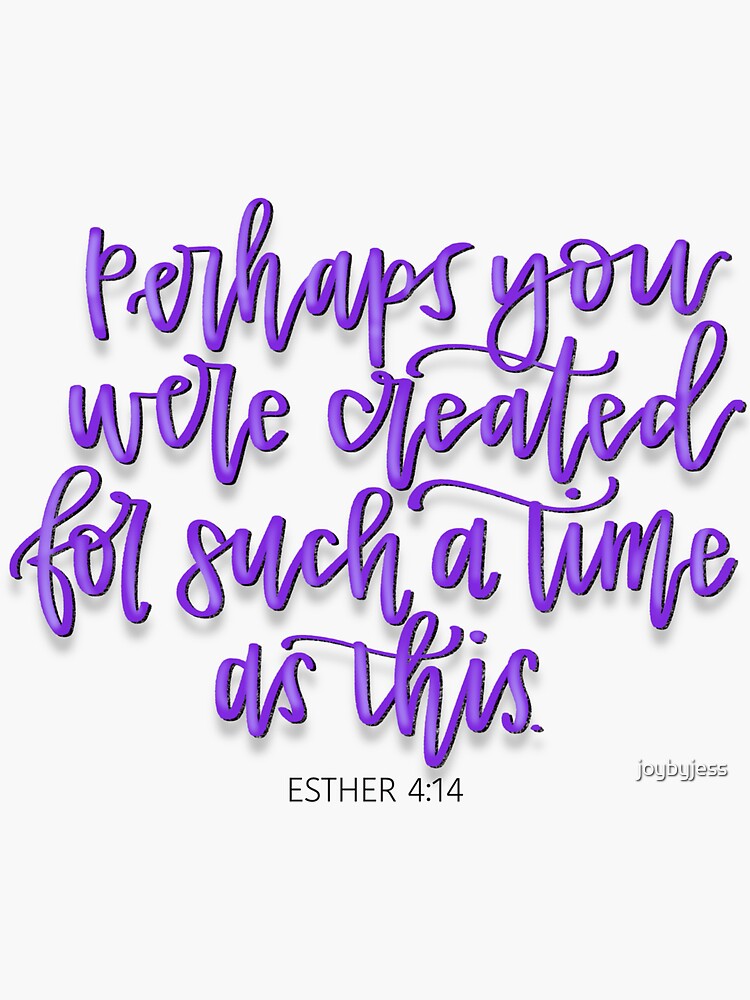 Perhaps you
were created
for such a time
as this.
ESTHER 4:14
joybyjess